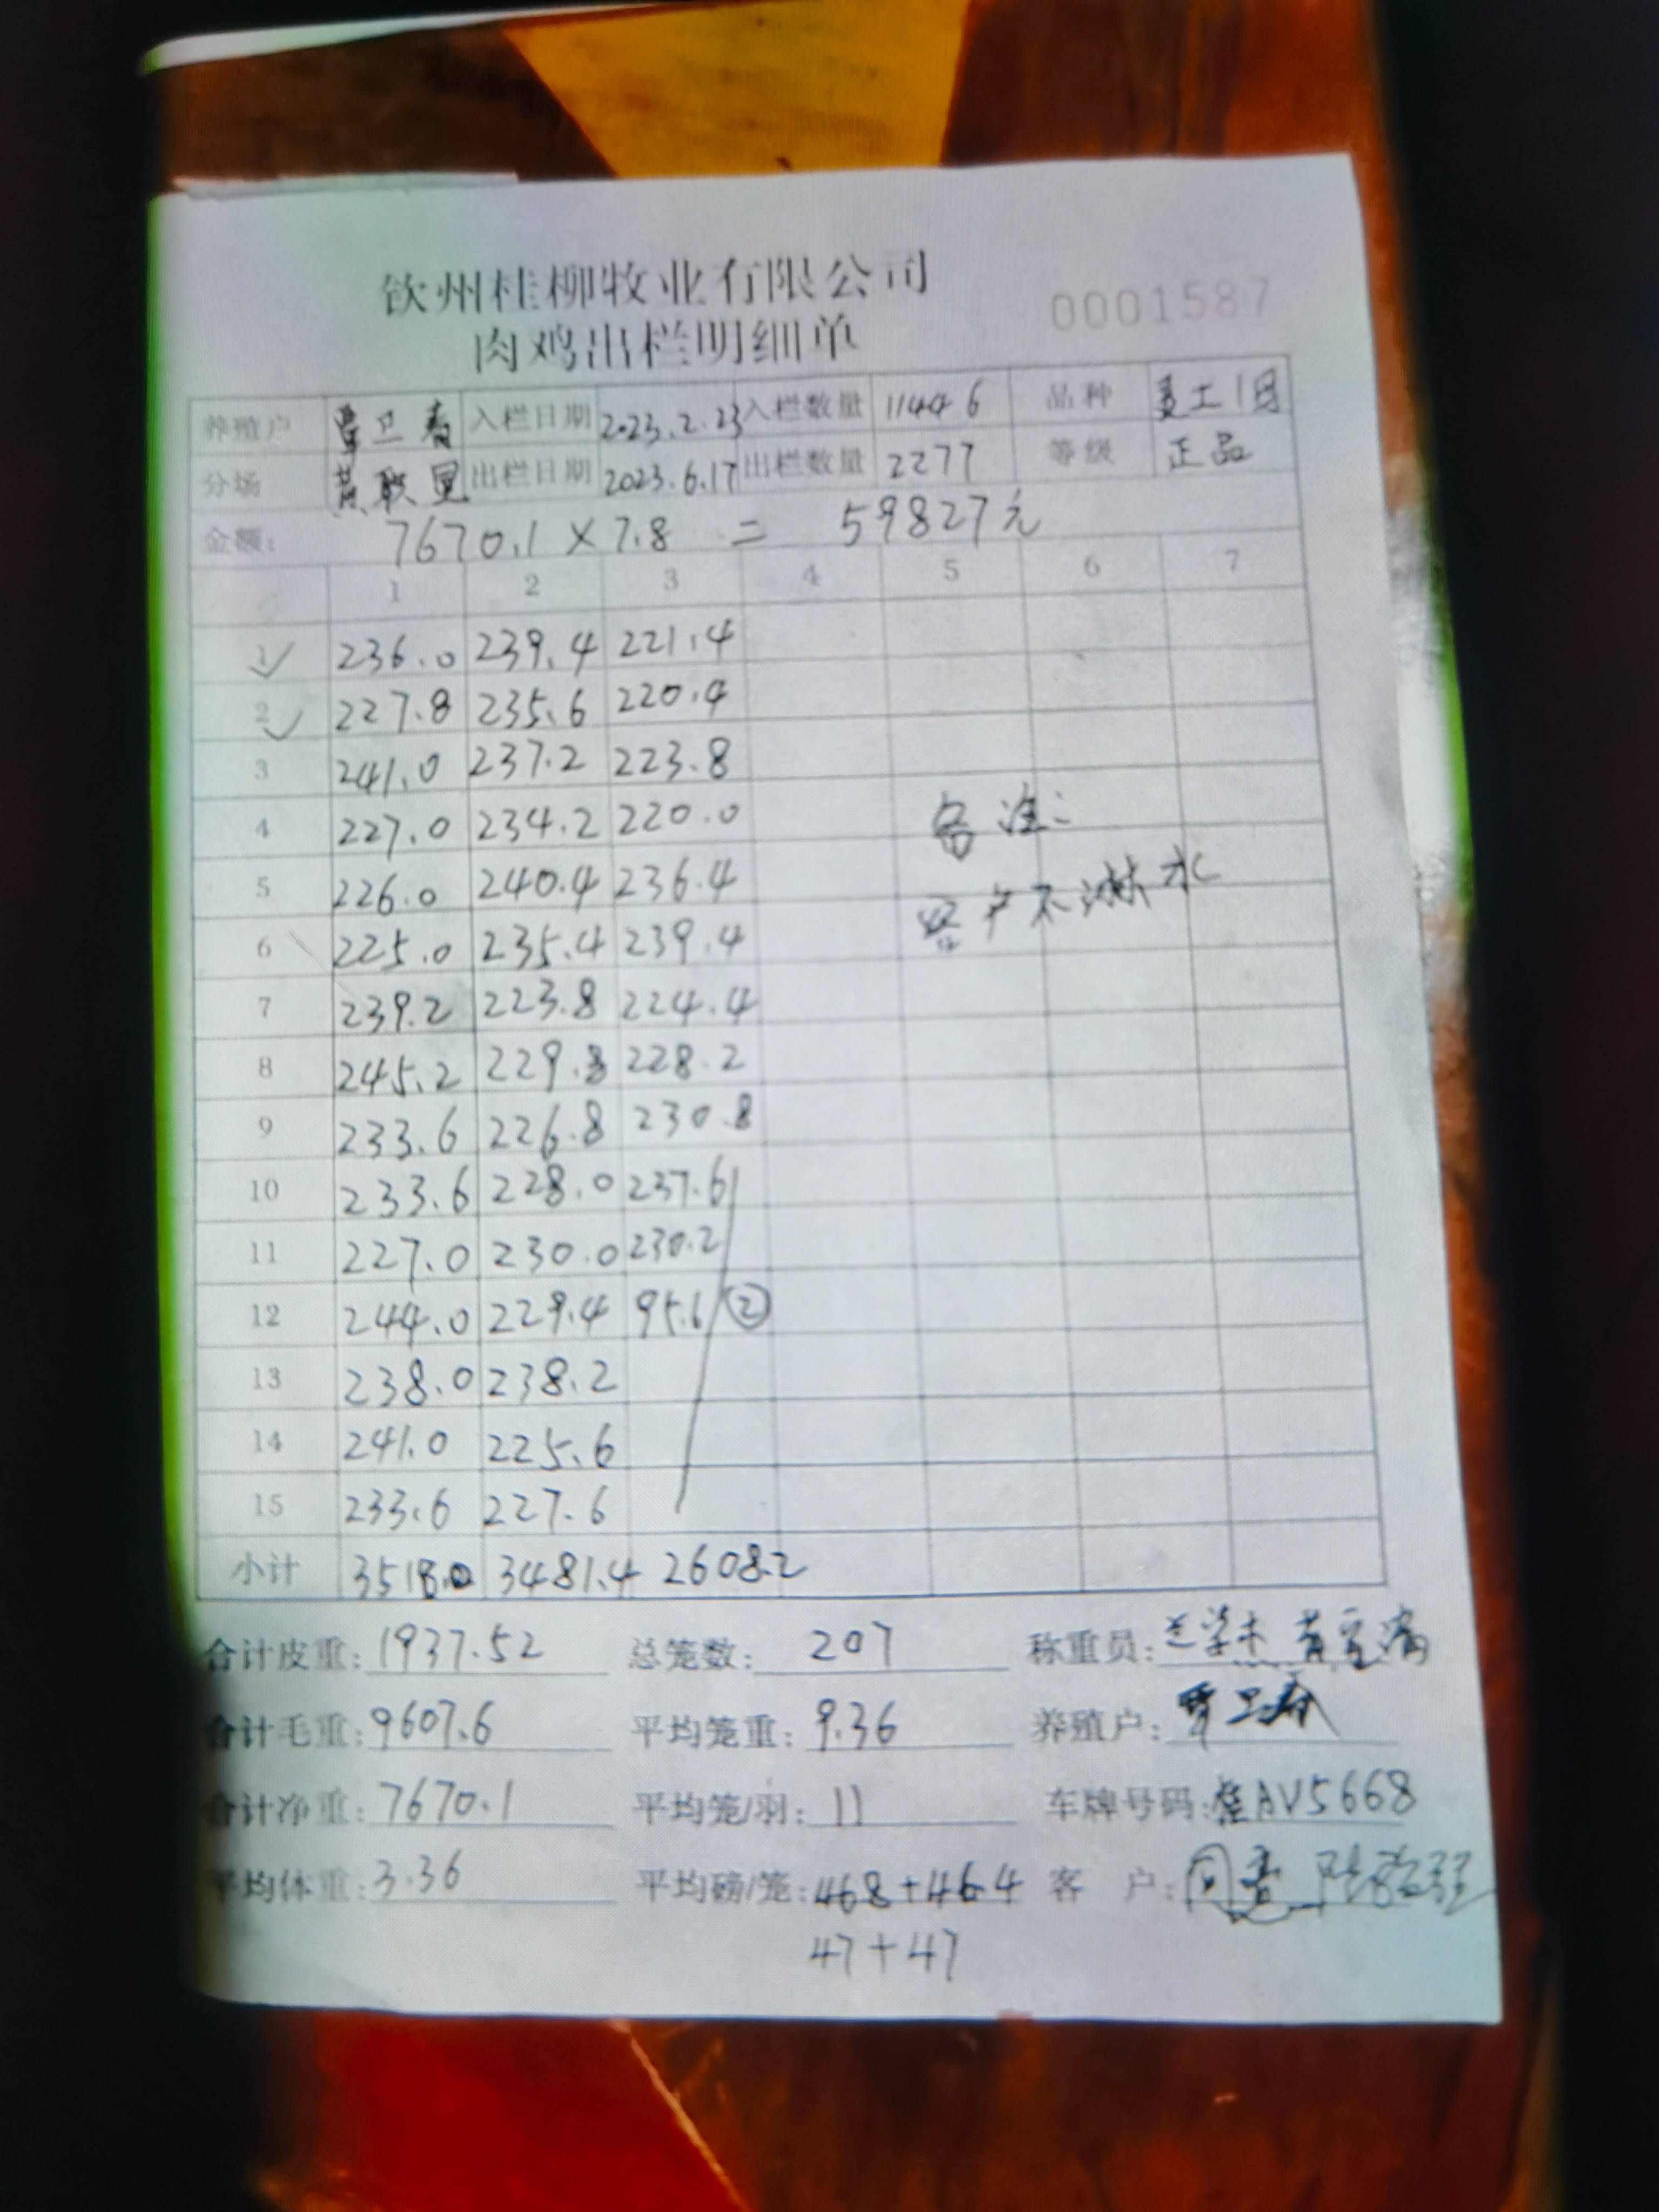 钦州桂柳牧业有限公司
0001587
肉鸡出栏明细单
养殖户 卫春 入栏日期 2023.2.23 入栏数量 11446 品种
分场 黄 出栏日期 2023.6.17 出栏数量 2277 等级 正品
金额: 7670.1 × 7.8 = 59827元
1 2 3 4 5 6 7
1 236.0 239.4 221.4
2 227.8 235.6 220.4
3 241.0 237.2 223.8
4 227.0 234.2 220.0
备注:
5 226.0 240.4 236.4
客户不淋水
6 225.0 235.4 239.4
7 239.2 223.8 224.4
8 245.2 229.8 228.2
9 233.6 226.8 230.8
10 233.6 228.0 237.6
11 227.0 230.0 230.2
12 244.0 229.4 95.6 ②
13 238.0 238.2
14 241.0 225.6
15 233.6 227.6
小计 3518.0 3481.4 2608.2
合计皮重: 1937.52 总笼数: 207 称重员:
合计毛重: 9607.6 平均笼重: 9.36 养殖户:
合计净重: 7670.1 平均笼/羽: 11 车牌号码: 桂AV5668
平均体重: 3.36 平均磅/笼: 46.8+46.4 客 户: 同意
47+47